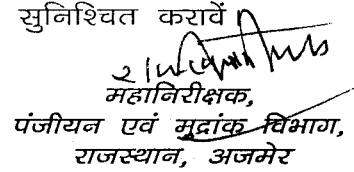 सुनिश्चित करावें
महानिरीक्षक,
पंजीयन एवं मुद्रांक विभाग,
राजस्थान, अजमेर